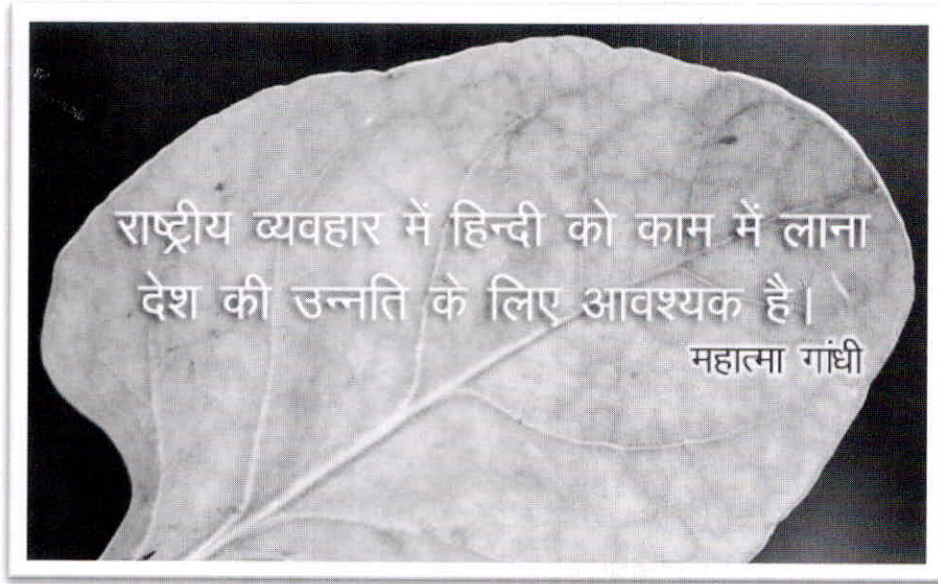 राष्ट्रीय व्यवहार में हिन्दी को काम में लाना
देश की उन्नति के लिए आवश्यक है।
महात्मा गांधी